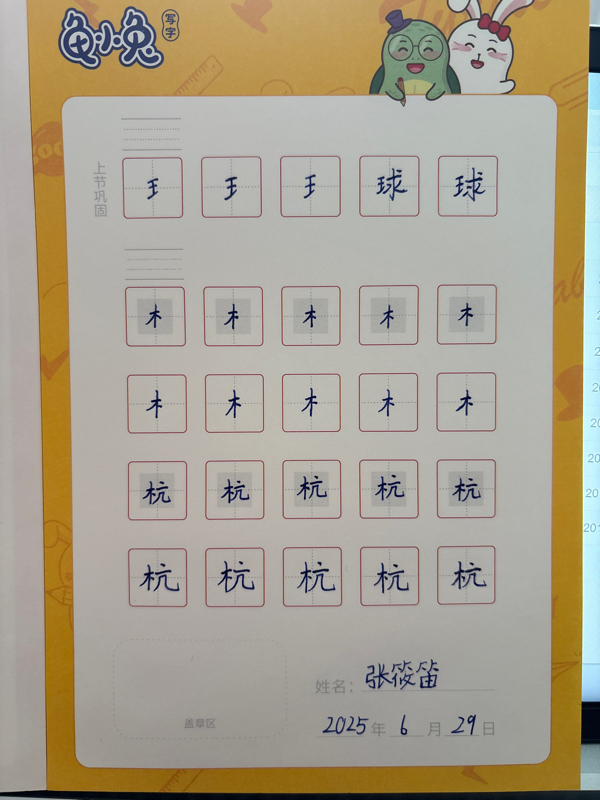 龟小兔写字
上节巩固
王 王 王 球 球
木 木 木 木 木
木 木 木 木 木
杭 杭 杭 杭 杭
杭 杭 杭 杭 杭
姓名：张筱笛
盖章区
2025年6月29日